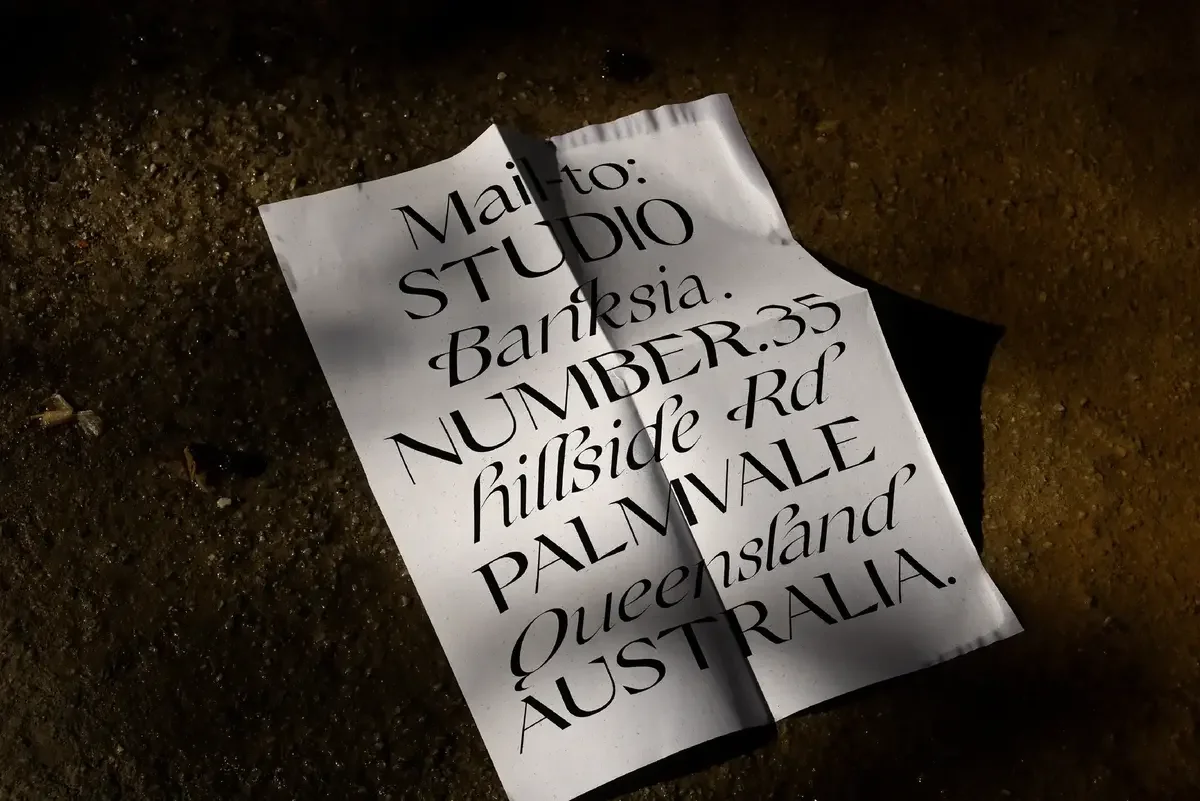 Mail-to:
STUDIO
Banksia.
NUMBER.35
hillside Rd
PALMVALE
Queensland
AUSTRALIA.